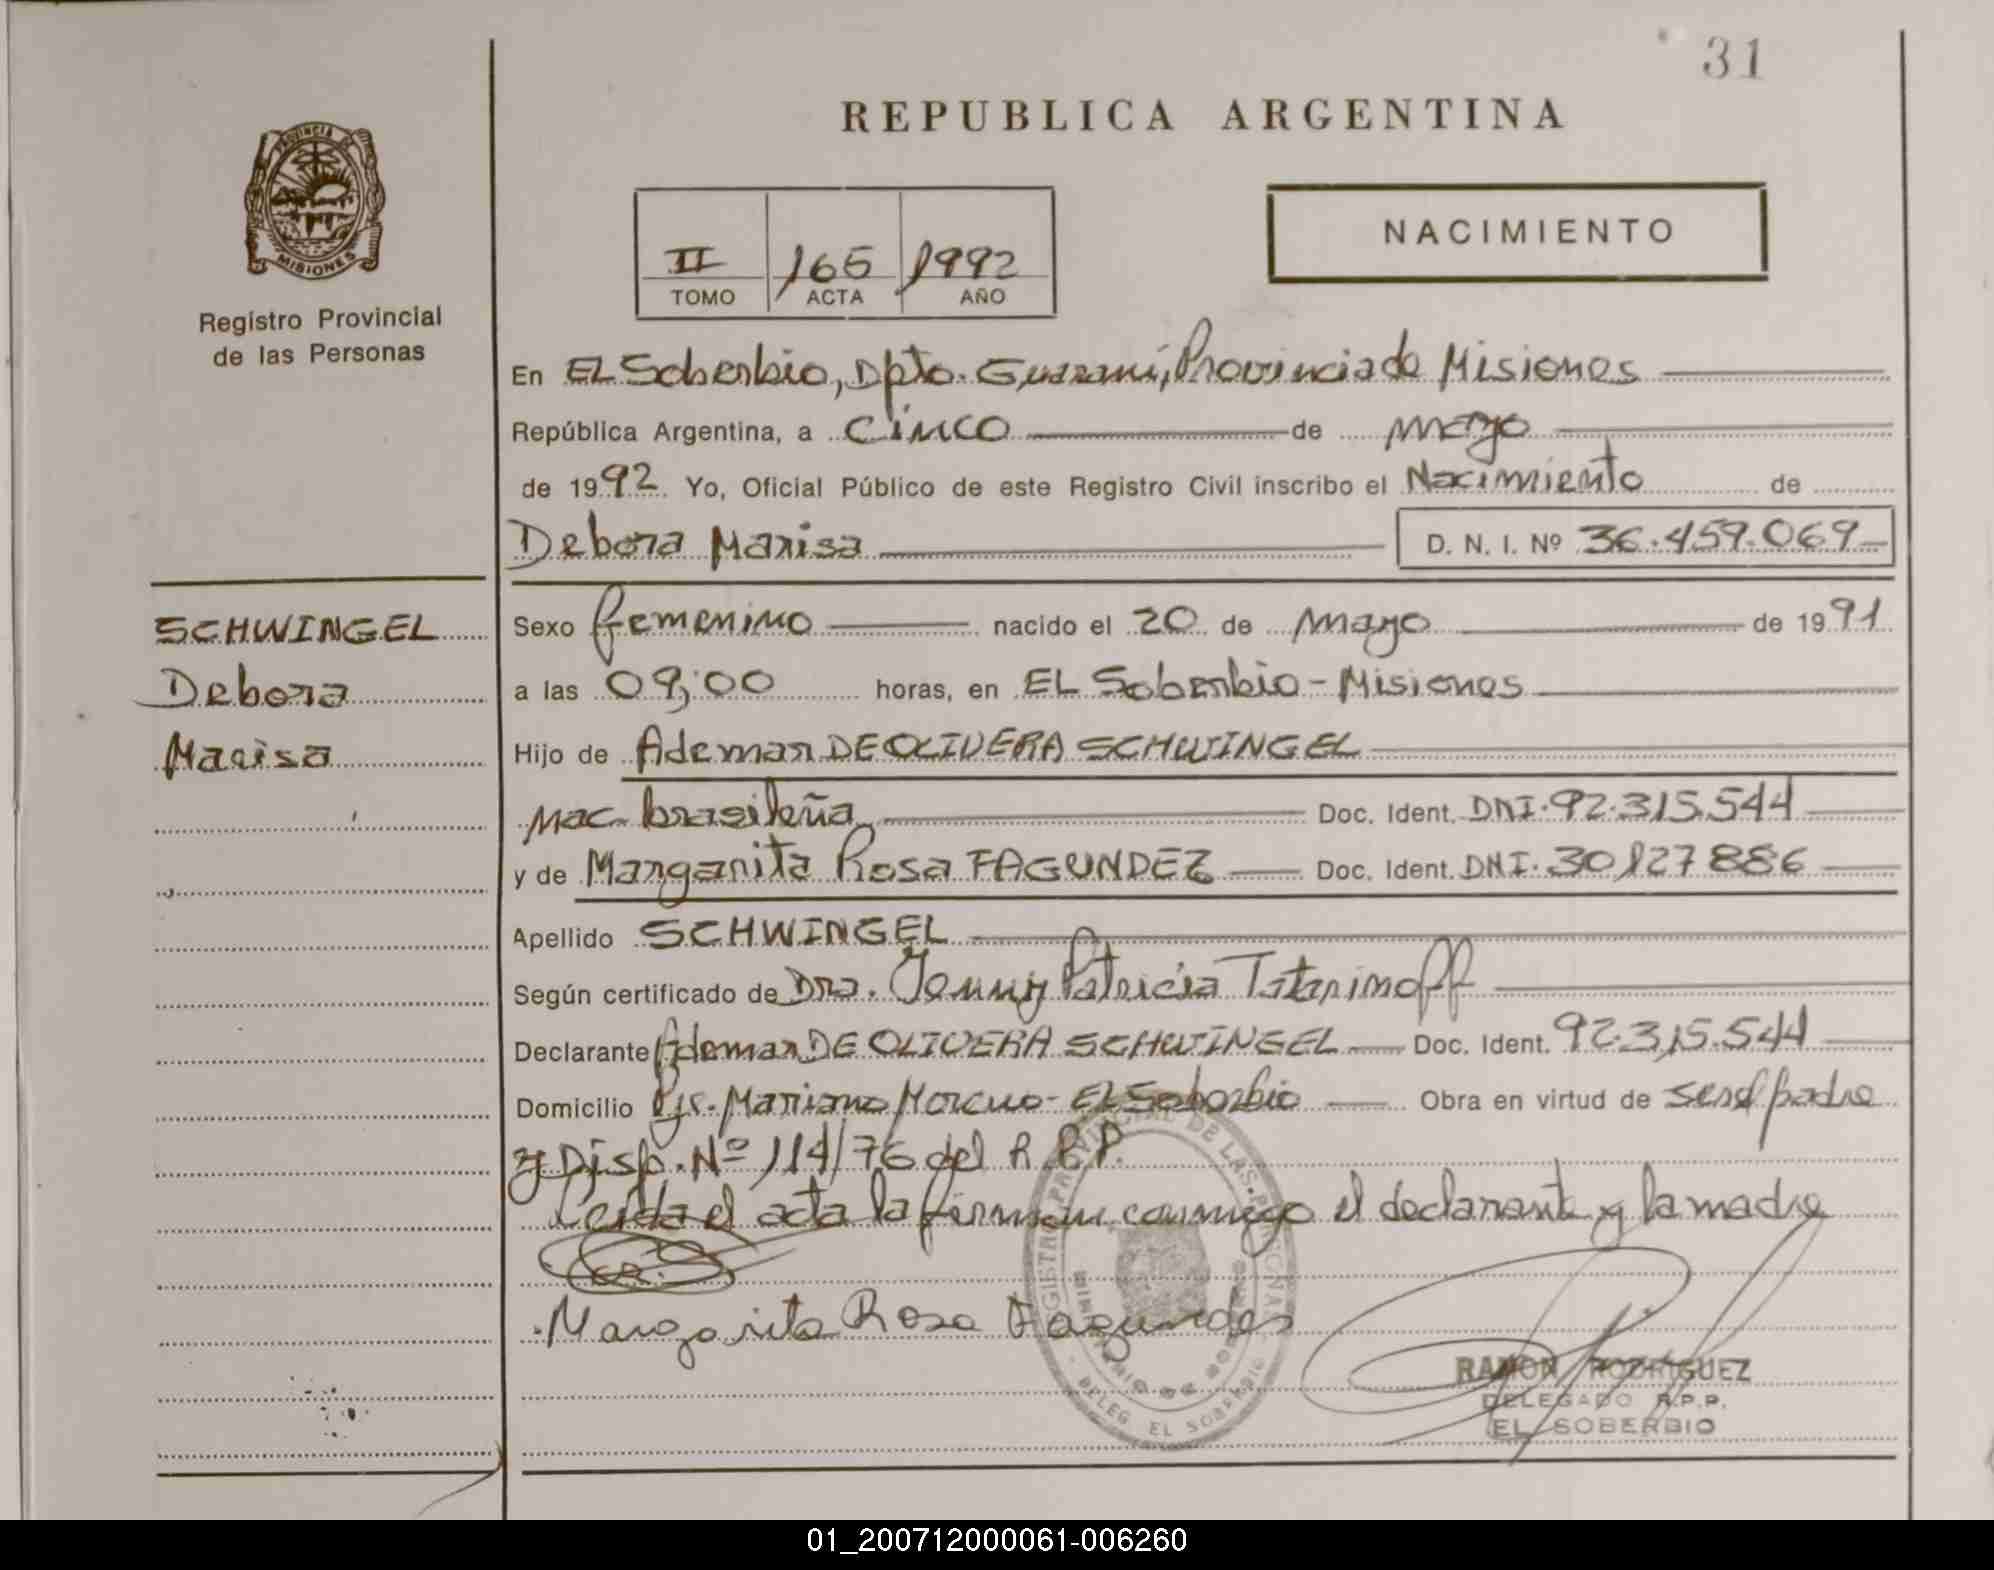 31
REPUBLICA ARGENTINA
PROVINCIA DE
MISIONES
Registro Provincial
de las Personas
II 165 1992
TOMO ACTA AÑO
NACIMIENTO
En EL Soberbio, Dpto. Guaraní, Provincia de Misiones
República Argentina, a cinco de mayo
de 1992 Yo, Oficial Público de este Registro Civil inscribo el Nacimiento de
Debora Marisa D. N. I. Nº 36.459.069
SCHWINGEL
Debora
Marisa
Sexo femenino nacido el 20 de mayo de 1991
a las 09,00 horas, en EL Soberbio - Misiones
Hijo de Ademar DE OLIVERA SCHWINGEL
nac. brasileña Doc. Ident. DNI. 92.315.544
y de Margarita Rosa FAGUNDEZ Doc. Ident. DNI. 30.127886
Apellido SCHWINGEL
Según certificado de Dra. Jenny Patricia Tatarinoff
Declarante Ademar DE OLIVERA SCHWINGEL Doc. Ident. 92.315.544
Domicilio Pje. Mariano Moreno - EL Soberbio Obra en virtud de ser el padre
y Disp. Nº 114/76 del R.P.P.
Leída el acta la firman conmigo el declarante y la madre
Margarita Rosa Fagundes
REGISTRO PROVINCIAL DE LAS PERSONAS
MINISTERIO DE GOBIERNO
DELEG. EL SOBERBIO
RAMON RODRIGUEZ
DELEGADO R.P.P.
EL SOBERBIO
01_200712000061-006260